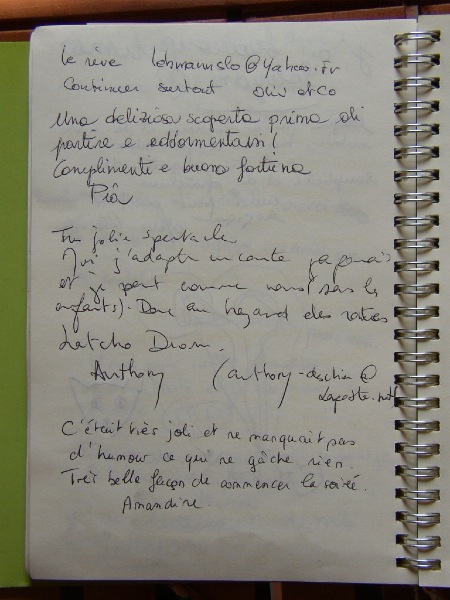 Le rêve lehmannslo@yahoo.fr
Continuer surtout Oliv et Co
Una deliziosa scoperta prima di
partire e addormentarsi!
Complimenti e buona fortuna
Pia
Très jolie spectacle
j'adapte un conte japonais
et je part comme vous (sans les
enfants). Donc au hasard des routes
Latcho Drom.
Anthony (anthony-deschin@
laposte.net
C'était très joli et ne manquait pas
d'humour ce qui ne gâche rien.
Très belle façon de commencer la soirée.
Amandine.